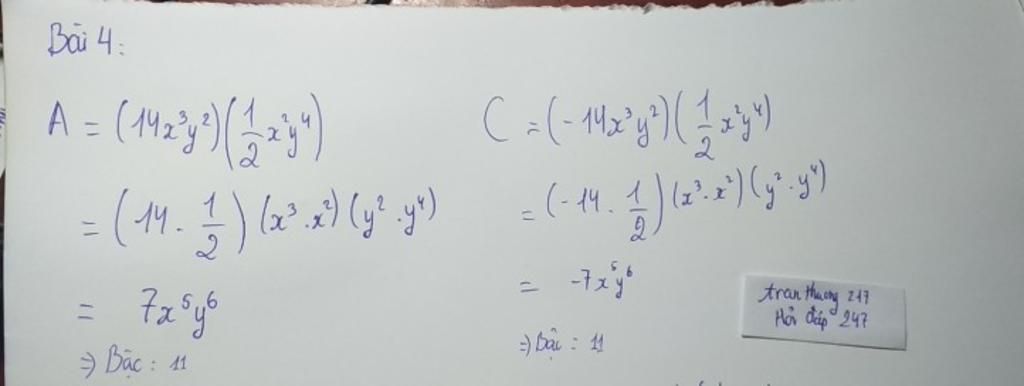 Bài 4:
A = (14x³y²)(1/2 x²y⁴)
= (14 . 1/2) (x³.x²) (y².y⁴)
= 7x⁵y⁶
=> Bậc : 11
C = (-14x³y²)(1/2 x²y⁴)
= (-14 . 1/2) (x³.x²) (y².y⁴)
= -7x⁵y⁶
=> Bậc : 11
tran thuong 217
Hỏi đáp 247